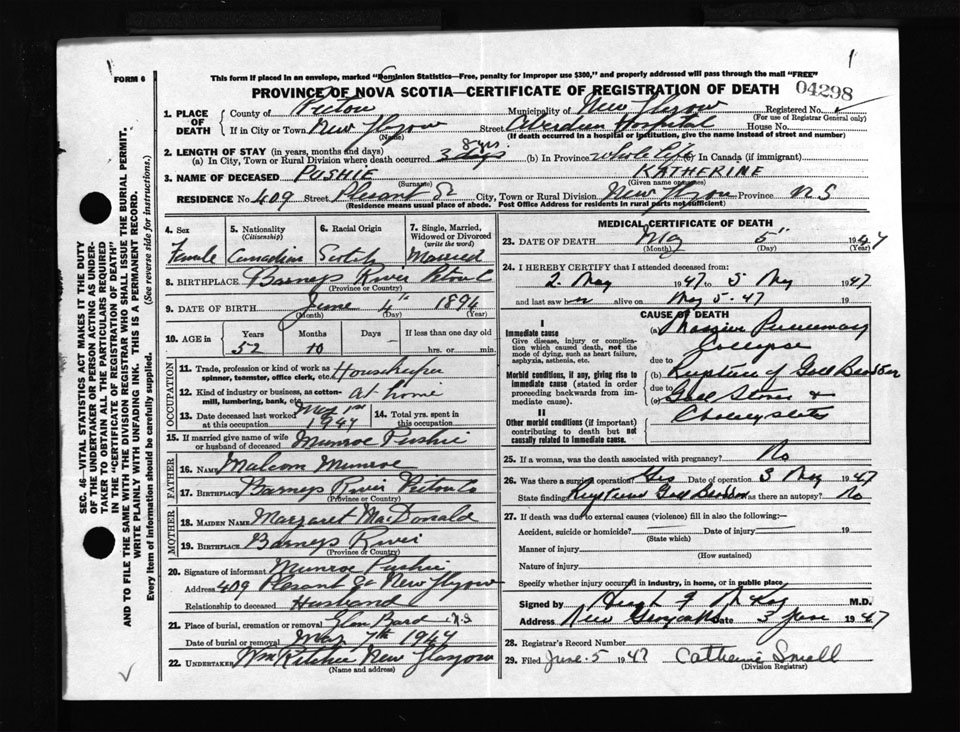 FORM 6
This form if placed in an envelope, marked "Dominion Statistics—Free, penalty for improper use $300," and properly addressed will pass through the mail "FREE"
PROVINCE OF NOVA SCOTIA—CERTIFICATE OF REGISTRATION OF DEATH 04298
1. PLACE OF DEATH County of Pictou Municipality of New Glasgow Registered No. (For use of Registrar General only)
If in City or Town New Glasgow (Name) Street Aberdeen Hospital House No.
(If death occurred in a hospital or institution, give the name instead of street and number)
2. LENGTH OF STAY (in years, months and days)
(a) In City, Town or Rural Division where death occurred 8 yrs. 3 days (b) In Province whole life (c) In Canada (if immigrant)
3. NAME OF DECEASED PUSHIE (Surname) KATHERINE (Given name or names)
RESIDENCE No. 409 Street City, Town or Rural Division New Province N S
(Residence means usual place of abode. Post Office Address for residents in rural parts not sufficient)
4. Sex Female
5. Nationality (Citizenship) Canadian
6. Racial Origin Scotch
7. Single, Married, Widowed or Divorced (write the word) Married
8. BIRTHPLACE Barneys River Pictou C (Province or Country)
9. DATE OF BIRTH June (Month) 4th (Day) 1894 (Year)
10. AGE in Years 52 Months 10 Days – If less than one day old hrs. or min.
OCCUPATION
11. Trade, profession or kind of work as spinner, teamster, office clerk, etc. Housekeeper
12. Kind of industry or business, as cotton-mill, lumbering, bank, etc. At home
13. Date deceased last worked at this occupation May 1st 1947
14. Total yrs. spent in this occupation
15. If married give name of wife or husband of deceased Munroe Pushie
FATHER
16. NAME Malcom Munroe
17. BIRTHPLACE Barneys River Pictou Co (Province or Country)
MOTHER
18. MAIDEN NAME Margaret MacDonald
19. BIRTHPLACE Barneys River (Province or Country)
20. Signature of informant Munroe Pushie
Address 409 New Glasgow
Relationship to deceased Husband
21. Place of burial, cremation or removal Glen Bard N.S
Date of burial or removal May 7th 1947
22. UNDERTAKER Wm Ritchie New Glasgow (Name and address)
MEDICAL CERTIFICATE OF DEATH
23. DATE OF DEATH May (Month) 5th (Day) 1947 (Year)
24. I HEREBY CERTIFY that I attended deceased from:
2 May 1947 to 5 May 1947
and last saw h er alive on May 5 - 47 19
CAUSE OF DEATH
I
Immediate cause
Give disease, injury, or complication which caused death, not the mode of dying, such as heart failure, asphyxia, asthenia, etc.
(a) Massive Collapse
due to
Morbid conditions, if any, giving rise to immediate cause (stated in order proceeding backwards from immediate cause).
(b) Rupture of Gall Bladder
due to
(c) Gall Stones &
II
Other morbid conditions (if important) contributing to death but not causally related to immediate cause.
25. If a woman, was the death associated with pregnancy? No
26. Was there a surgical operation? Yes Date of operation 3 May 1947
State findings Ruptured Gall Bladder Was there an autopsy? No
27. If death was due to external causes (violence) fill in also the following:—
Accident, suicide or homicide? (State which) Date of injury 19
Manner of injury (How sustained)
Nature of injury
Specify whether injury occurred in industry, in home, or in public place
Signed by M.D.
Address New Glasgow Date 3 June 1947
28. Registrar's Record Number
29. Filed June. 5 1947 Catherine Small (Division Registrar)
SEC. 46—VITAL STATISTICS ACT MAKES IT THE DUTY
OF THE UNDERTAKER OR PERSON ACTING AS UNDER-
TAKER TO OBTAIN ALL THE PARTICULARS REQUIRED
IN THE "CERTIFICATE OF REGISTRATION OF DEATH"
AND TO FILE THE SAME WITH THE DIVISION REGISTRAR WHO SHALL ISSUE THE BURIAL PERMIT.
WRITE PLAINLY WITH UNFADING INK. THIS IS A PERMANENT RECORD.
Every item of information should be carefully supplied. (See reverse side for instructions.)